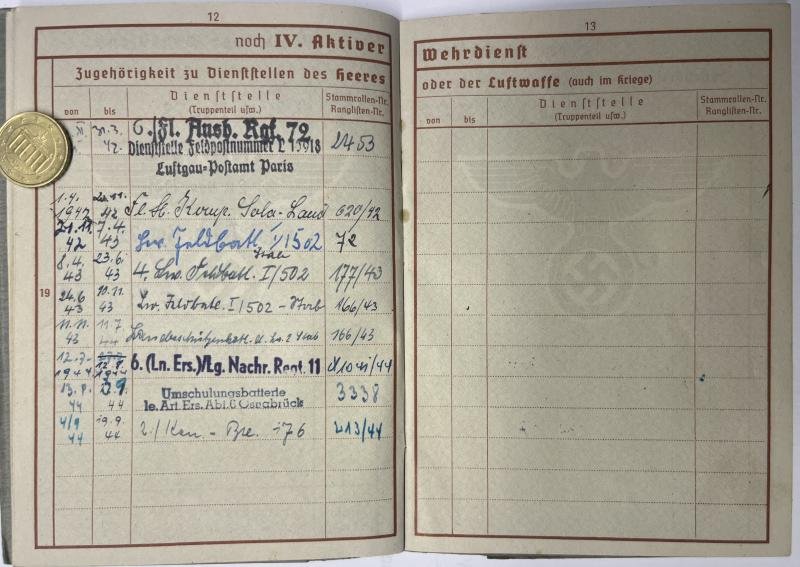 12
noch IV. Aktiver
Zugehörigkeit zu Dienststellen des Heeres
von
bis
Dienststelle
(Truppenteil usw.)
Stammrollen-Nr.
Ranglisten-Nr.
31.3. 42.
6./Fl. Ausb. Rgt. 72
Dienststelle Feldpostnummer L
Luftgau-Postamt Paris
2453
1.4. 1942
42
Fl. H. Komp. Sola-Land
620/42
42
7.4. 43
Lw. Feldbatl. I/502
72
8.4. 43
23.6. 43
4. Lw. Feldbatl. I/502
Stab
177/43
24.6 43
10.11. 43
Lw. Feldbatl. I/502 - Stab
166/43
19
11.11. 43
11.7 44
166/43
12.7. 1944
1944
6. (Ln. Ers.)/Lg. Nachr. Regt. 11
13.8. 44
3.9. 44
Umschulungsbatterie
le. Art. Ers. Abt. 6 Osnabrück
3338
4/9 44
19.9. 44
213/44
13
Wehrdienst
oder der Luftwaffe (auch im Kriege)
von
bis
Dienststelle
(Truppenteil usw.)
Stammrollen-Nr.
Ranglisten-Nr.